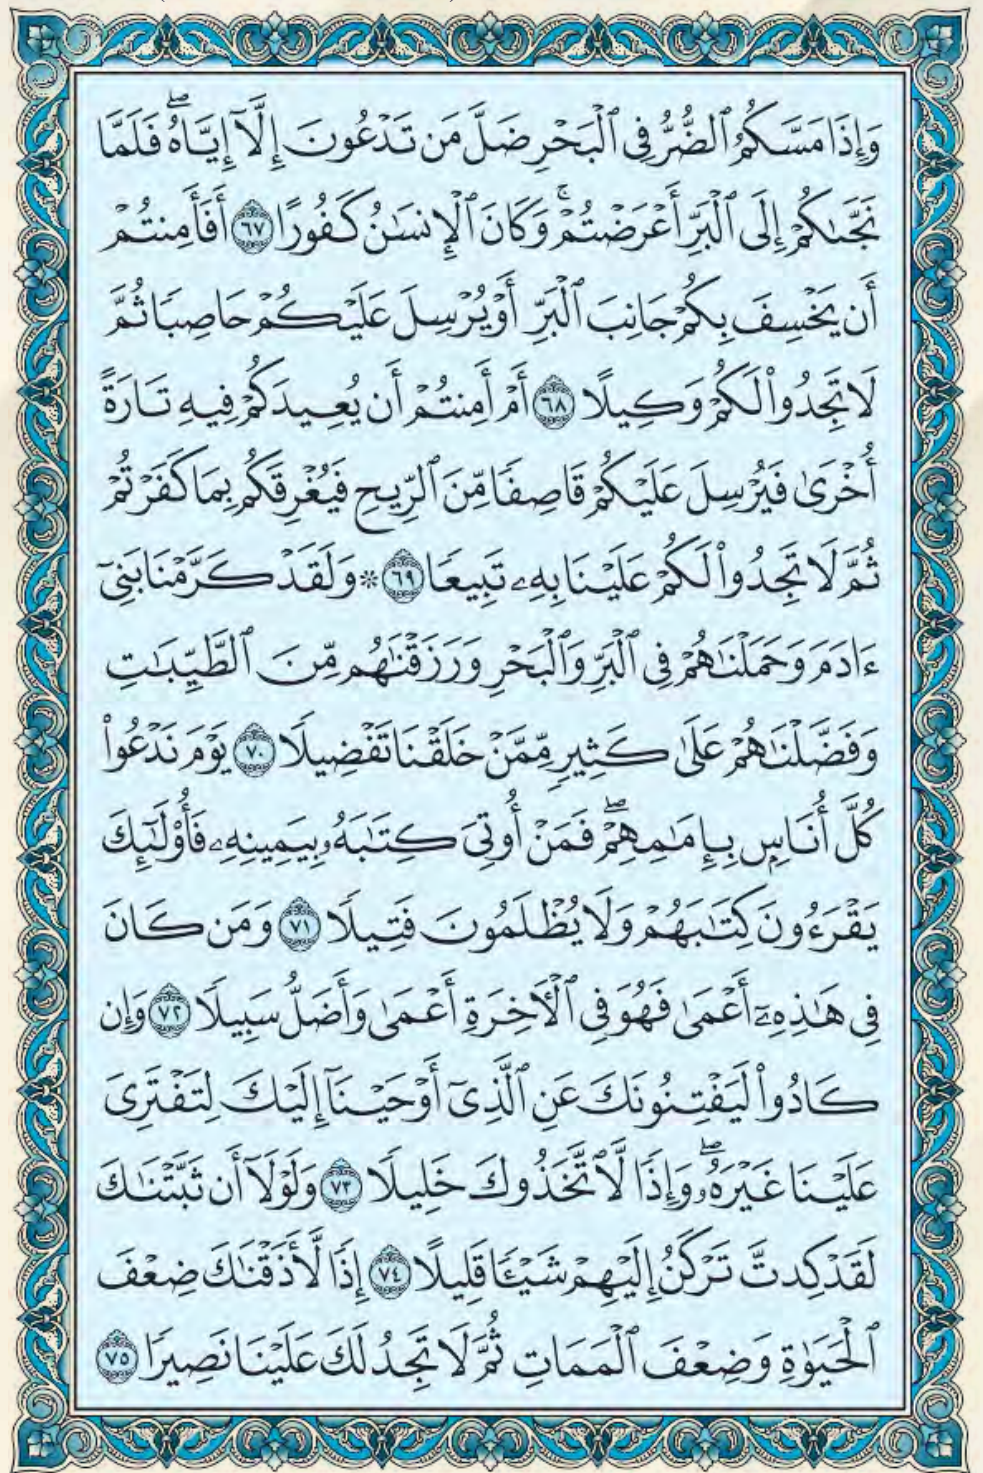 وَإِذَا مَسَّكُمُ ٱلضُّرُّ فِى ٱلْبَحْرِ ضَلَّ مَن تَدْعُونَ إِلَّآ إِيَّاهُ ۖ فَلَمَّا
نَجَّىٰكُمْ إِلَى ٱلْبَرِّ أَعْرَضْتُمْ ۚ وَكَانَ ٱلْإِنسَـٰنُ كَفُورًا ٦٧ أَفَأَمِنتُمْ
أَن يَخْسِفَ بِكُمْ جَانِبَ ٱلْبَرِّ أَوْ يُرْسِلَ عَلَيْكُمْ حَاصِبًا ثُمَّ
لَا تَجِدُوا۟ لَكُمْ وَكِيلًا ٦٨ أَمْ أَمِنتُمْ أَن يُعِيدَكُمْ فِيهِ تَارَةً
أُخْرَىٰ فَيُرْسِلَ عَلَيْكُمْ قَاصِفًا مِّنَ ٱلرِّيحِ فَيُغْرِقَكُم بِمَا كَفَرْتُمْ
ثُمَّ لَا تَجِدُوا۟ لَكُمْ عَلَيْنَا بِهِۦ تَبِيعًا ٦٩ * وَلَقَدْ كَرَّمْنَا بَنِىٓ
ءَادَمَ وَحَمَلْنَـٰهُمْ فِى ٱلْبَرِّ وَٱلْبَحْرِ وَرَزَقْنَـٰهُم مِّنَ ٱلطَّيِّبَـٰتِ
وَفَضَّلْنَـٰهُمْ عَلَىٰ كَثِيرٍ مِّمَّنْ خَلَقْنَا تَفْضِيلًا ٧٠ يَوْمَ نَدْعُوا۟
كُلَّ أُنَاسٍۭ بِإِمَـٰمِهِمْ ۖ فَمَنْ أُوتِىَ كِتَـٰبَهُۥ بِيَمِينِهِۦ فَأُو۟لَـٰٓئِكَ
يَقْرَءُونَ كِتَـٰبَهُمْ وَلَا يُظْلَمُونَ فَتِيلًا ٧١ وَمَن كَانَ
فِى هَـٰذِهِۦٓ أَعْمَىٰ فَهُوَ فِى ٱلْـَٔاخِرَةِ أَعْمَىٰ وَأَضَلُّ سَبِيلًا ٧٢ وَإِن
كَادُوا۟ لَيَفْتِنُونَكَ عَنِ ٱلَّذِىٓ أَوْحَيْنَآ إِلَيْكَ لِتَفْتَرِىَ
عَلَيْنَا غَيْرَهُۥ ۖ وَإِذًا لَّٱتَّخَذُوكَ خَلِيلًا ٧٣ وَلَوْلَآ أَن ثَبَّتْنَـٰكَ
لَقَدْ كِدتَّ تَرْكَنُ إِلَيْهِمْ شَيْـًٔا قَلِيلًا ٧٤ إِذًا لَّأَذَقْنَـٰكَ ضِعْفَ
ٱلْحَيَوٰةِ وَضِعْفَ ٱلْمَمَاتِ ثُمَّ لَا تَجِدُ لَكَ عَلَيْنَا نَصِيرًا ٧٥